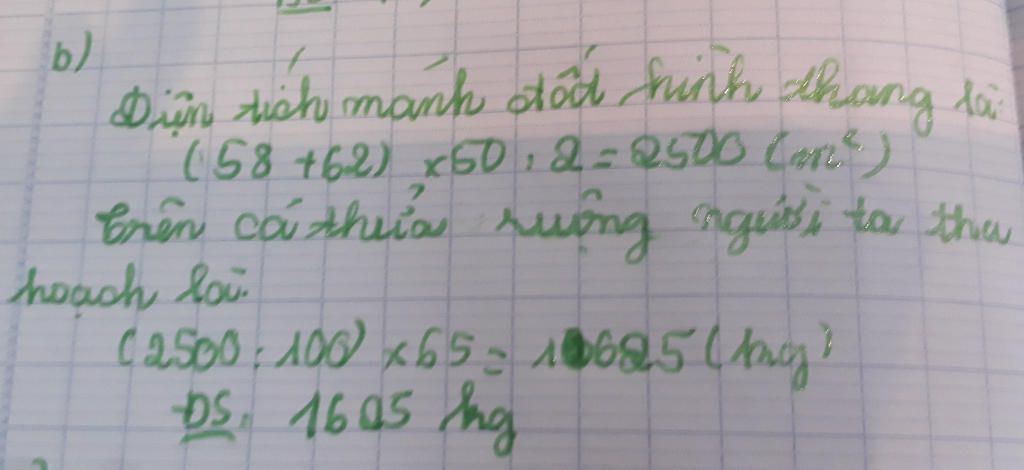 b)
Diện tích mảnh đất hình thang là:
(58 + 62) x 50 : 2 = 2500 (m²)
Trên cả thửa ruộng người ta thu
hoạch là:
(2500 : 100) x 65 = 1625 (kg)
ĐS: 1625 kg